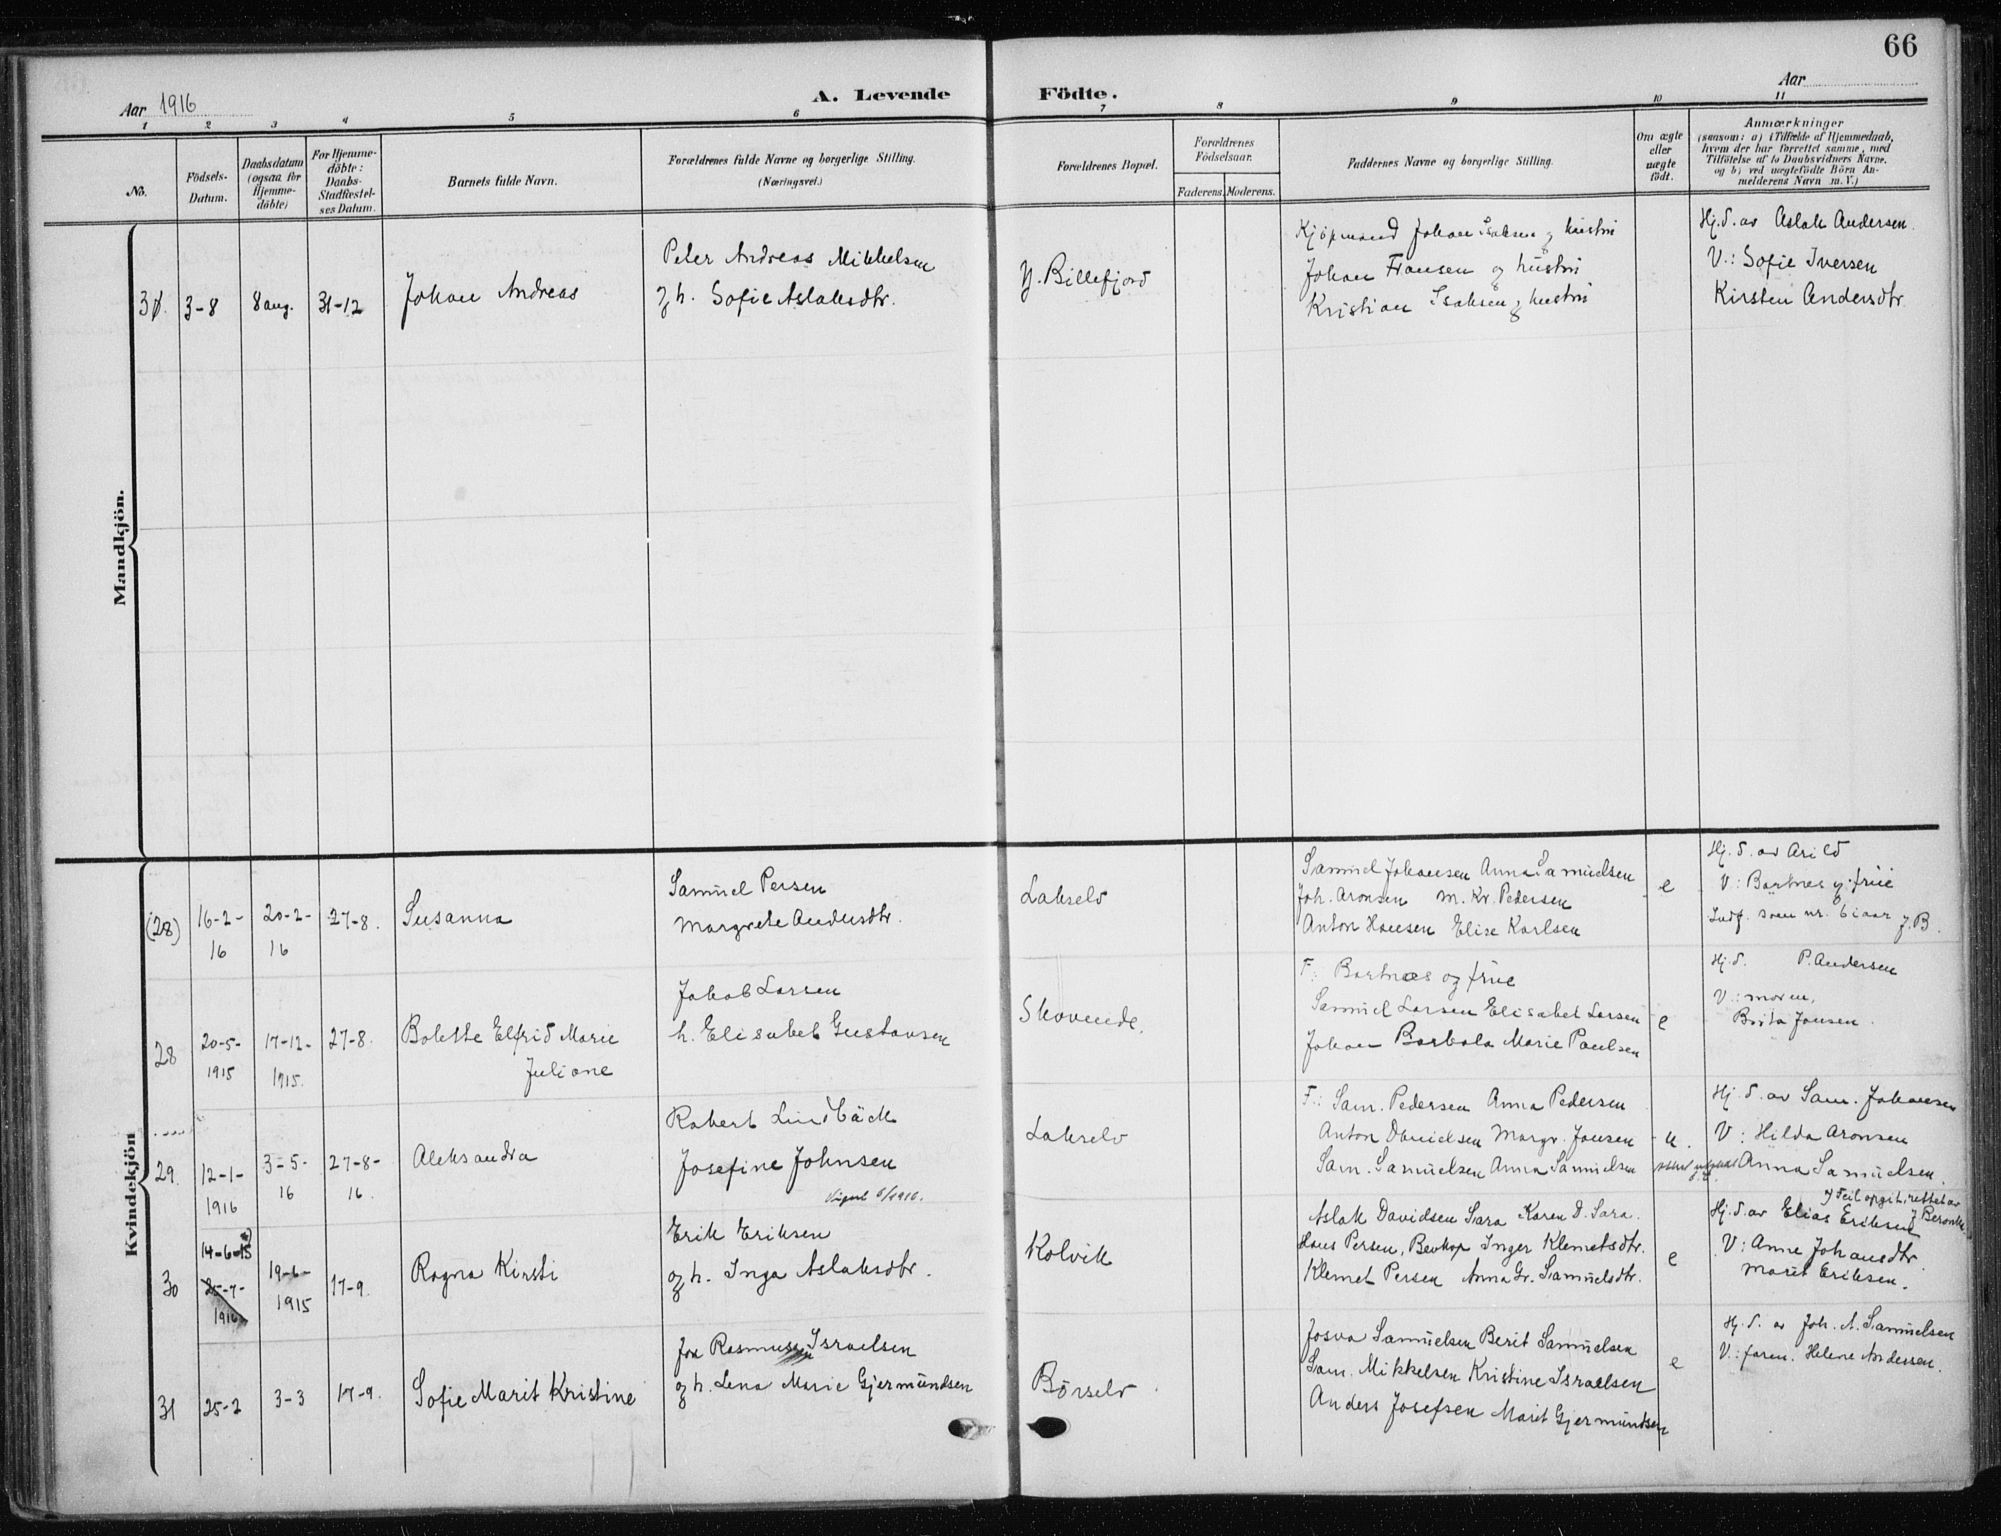 66
Aar 1916
A. Levende
Födte.
Aar
1 2 3 4 5 6 7 8 9 10 11
No.
Födsels-Datum.
Daabsdatum (ogsaa for Hjemme-döbte)
For Hjemme-döbte: Daabs-Stadfæstel-ses Datum.
Barnets fulde Navn.
Forældrenes fulde Navne og borgerlige Stilling. (Næringsvei.)
Forældrenes Bopæl.
Forældrenes Födselsaar.
Faderens. Moderens.
Faddernes Navne og borgerlige Stilling.
Om ægte eller uægte födt.
Anmærkninger
(saasom: a) i Tilfælde af Hjemmedaab, hvem der har forrettet samme, med Tilföielse af to Daabsvidners Navne, og b) ved uægtefödte Börn An-melderens Navn m. V.)
Mandkjön.
3-8
8 aug.
31-12
Johan Andreas
Peter Andreas Mikkelsen
og h. Sofie Aslaksdtr.
Y. Billefjord
Kjøpmand Johan Isaksen og hustru
Johan Fransen og hustru
Kristian Isaksen og hustru
Hj. d. av Aslak Andersen.
V.: Sofie Iversen
Kirsten Andersdtr.
Kvindekjön
(28)
16-2-
16
20-2-
16
27-8.
Susanna
Samuel Persen
Margrete Andersdtr.
Lakselv
Samuel Johansen Anna Samuelsen
Joh. Aronsen M. Kr. Pedersen
Anton Hansen Elise Karlsen
e
Hj. d. av Arild
V: Bartnes og frue
Indf. som nr. 6 i aar J. B.
28
20-5-
1915
17-12-
1915.
27-8.
Bolette Elfrid Marie
Juliane
Jakob Larsen
h. Elisabet Gustavsen
Skovende.
F: Bartnes og frue
Samuel Larsen Elisabet Larsen
Johan Barbala Marie Paulsen
e
Hj. d. P. Andersen
V: moren,
Brita Jansen.
29.
12-1-
1916
3-5-
16
27-8-
16.
Aleksandra
Robert Lindbäck
Josefine Johnsen
Lakselv
F.: Sam. Pedersen Anna Pedersen
Anton Danielsen Margr. Jansen
Sam. Samuelsen Anna Samuelsen
u.
Hj. d. av Sam. Johansen
V: Hilda Aronsen
Anna Samuelsen.
30
14-6-15
25-7-
1916
19-6-
1915
17-9.
Ragna Kirsti
Erik Eriksen
og h. Inga Aslaksdtr.
Kolvik
Aslak Davidsen Sara Karen D. Sara.
Hans Persen, Inger Klemetsdtr.
Klemet Persen Anna Gr. Samuelsdtr.
e
Feil opgit, rettet av
Hj. d. av Elias Eriksen
V: Anne Johansdtr.
Marit Eriksen.
31
25-2
3-3
17-9.
Sofie Marit Kristine
Rasmus Israelsen
og h. Lena Marie Gjermundsen
Børselv
Josva Samuelsen Berit Samuelsen
Sam. Mikkelsen Kristine Israelsen
Anders Josefsen Marit Gjermundsen
e
Hj. d. av Joh. A. Samuelsen
V.: faren. Helene Andersen.